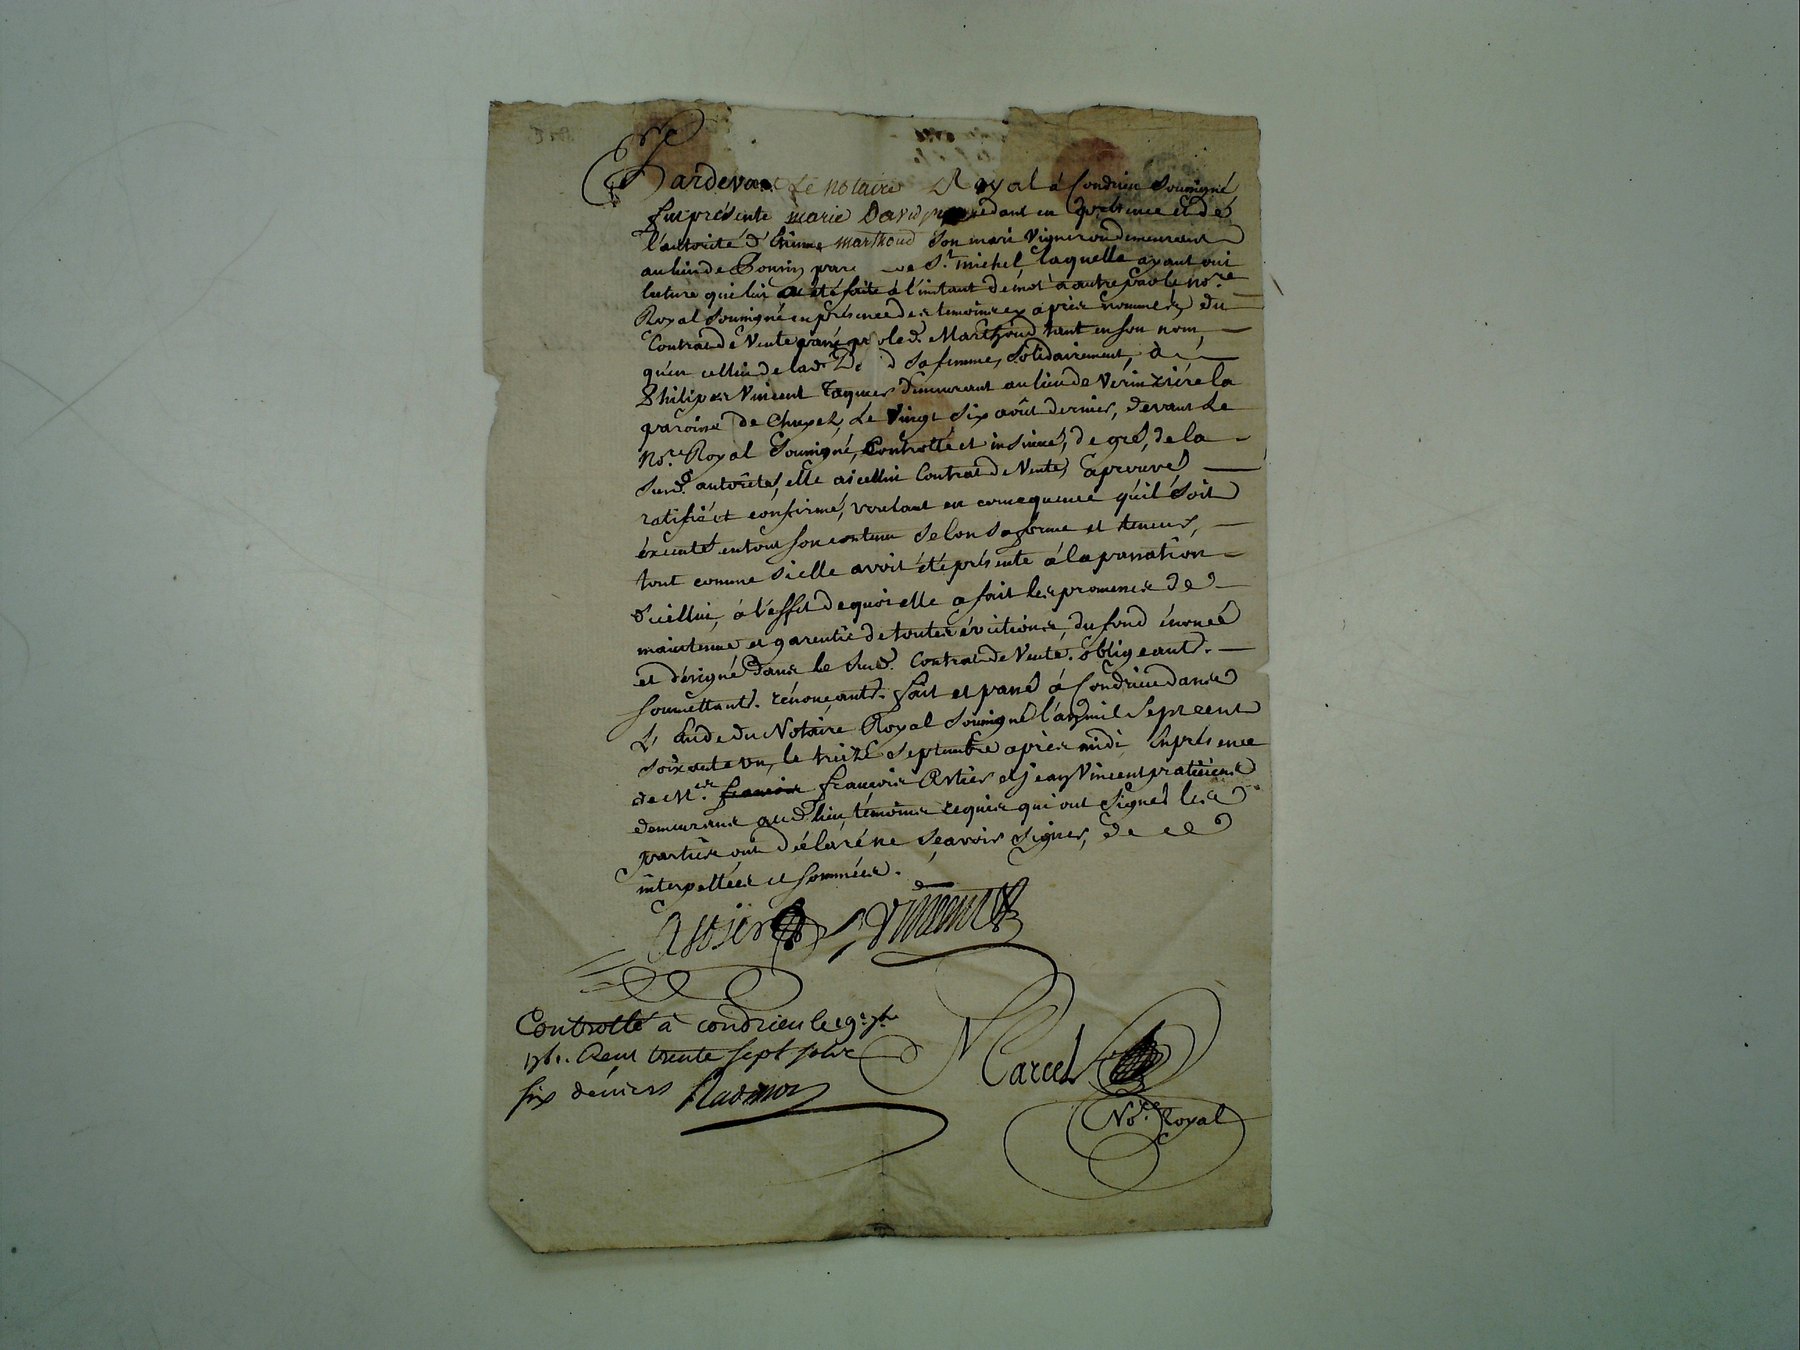 Pardevant Le notaire Royal à Condrieu Soussigné
fut présente marie David procedant en présence et de
l'autorité d'Etienne marthoud Son mari Vigneron demeurant
au lieu de par de St. michel, laquelle ayant oui
lecture que lui a été faite à l'instant de mot à autre par le no.re
Royal Soussigné en présence des temoins cy après nommés du
Contrat de Vente passé par led. Marthoud tant en Son nom,
qu'en cellui de lad. D d Sa femme, Solidairement, à
Philiper Vincent Jaques Demeurant au lieu de Verinzière la
paroisse de Chuyer, Le Vingt Six août dernier, devant Le
No.re Royal Soussigné, Controllé et insinué, de gré, de la
Susd. autorité, elle a icellui Contrat de Vente, aprouvé
ratifié et confirmé, voulant en consequence qu'il Soit
éxecuté en tout Son contenu Selon Sa forme et teneur,
tout comme Si elle avoit été présente à la passation
d'icellui, à l'effet de quoi elle a fait les promesses de
maintenue et garentie de toutes évictions, du fond énoncé
et désigné dans le Susd. Contrat de Vente. obligeant.
Soumettant. rénonceant. fait et passé à Condrieu dans
L'Etude du Notaire Royal Soussigné l'an mil Sept cent
Soixante un, le treize Septembre après midi, En présence
de M.es francois françois Astier et jean Vincent praticiens
demeurans aud. lieu, témoins requis qui ont Signé les
parties ont déclaré ne Sçavoir Signer, de ce
interpellées et Sommées.
Astier Vincent
Controllé à condrieu le 19e 7bre
1761. Reçu trente Sept Sols
Six deniers
Marcel
No.re Royal